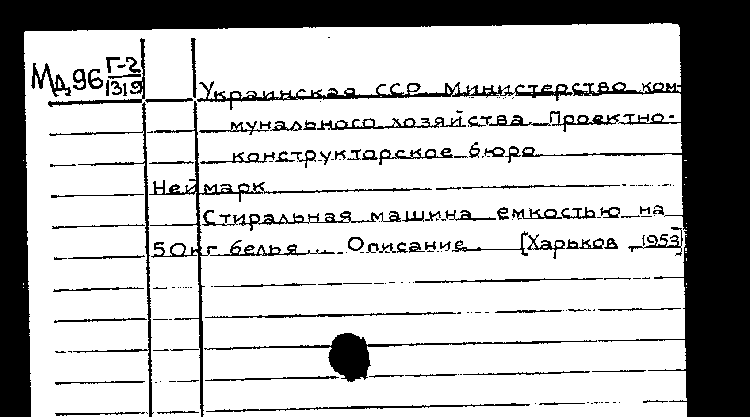 Мд 96 Г-2
1319
Украинская ССР. Министерство ком-
мунального хозяйства. Проектно-
конструкторское бюро
Неймарк
Стиральная машина емкостью на
50 кг белья... Описание. [Харьков, 1953]